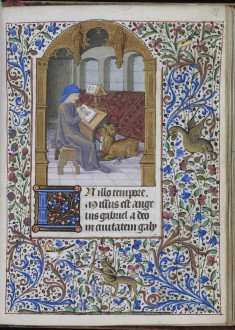 In illo tempore.
Missus est ange
lus gabriel a deo
in ciuitatem galy